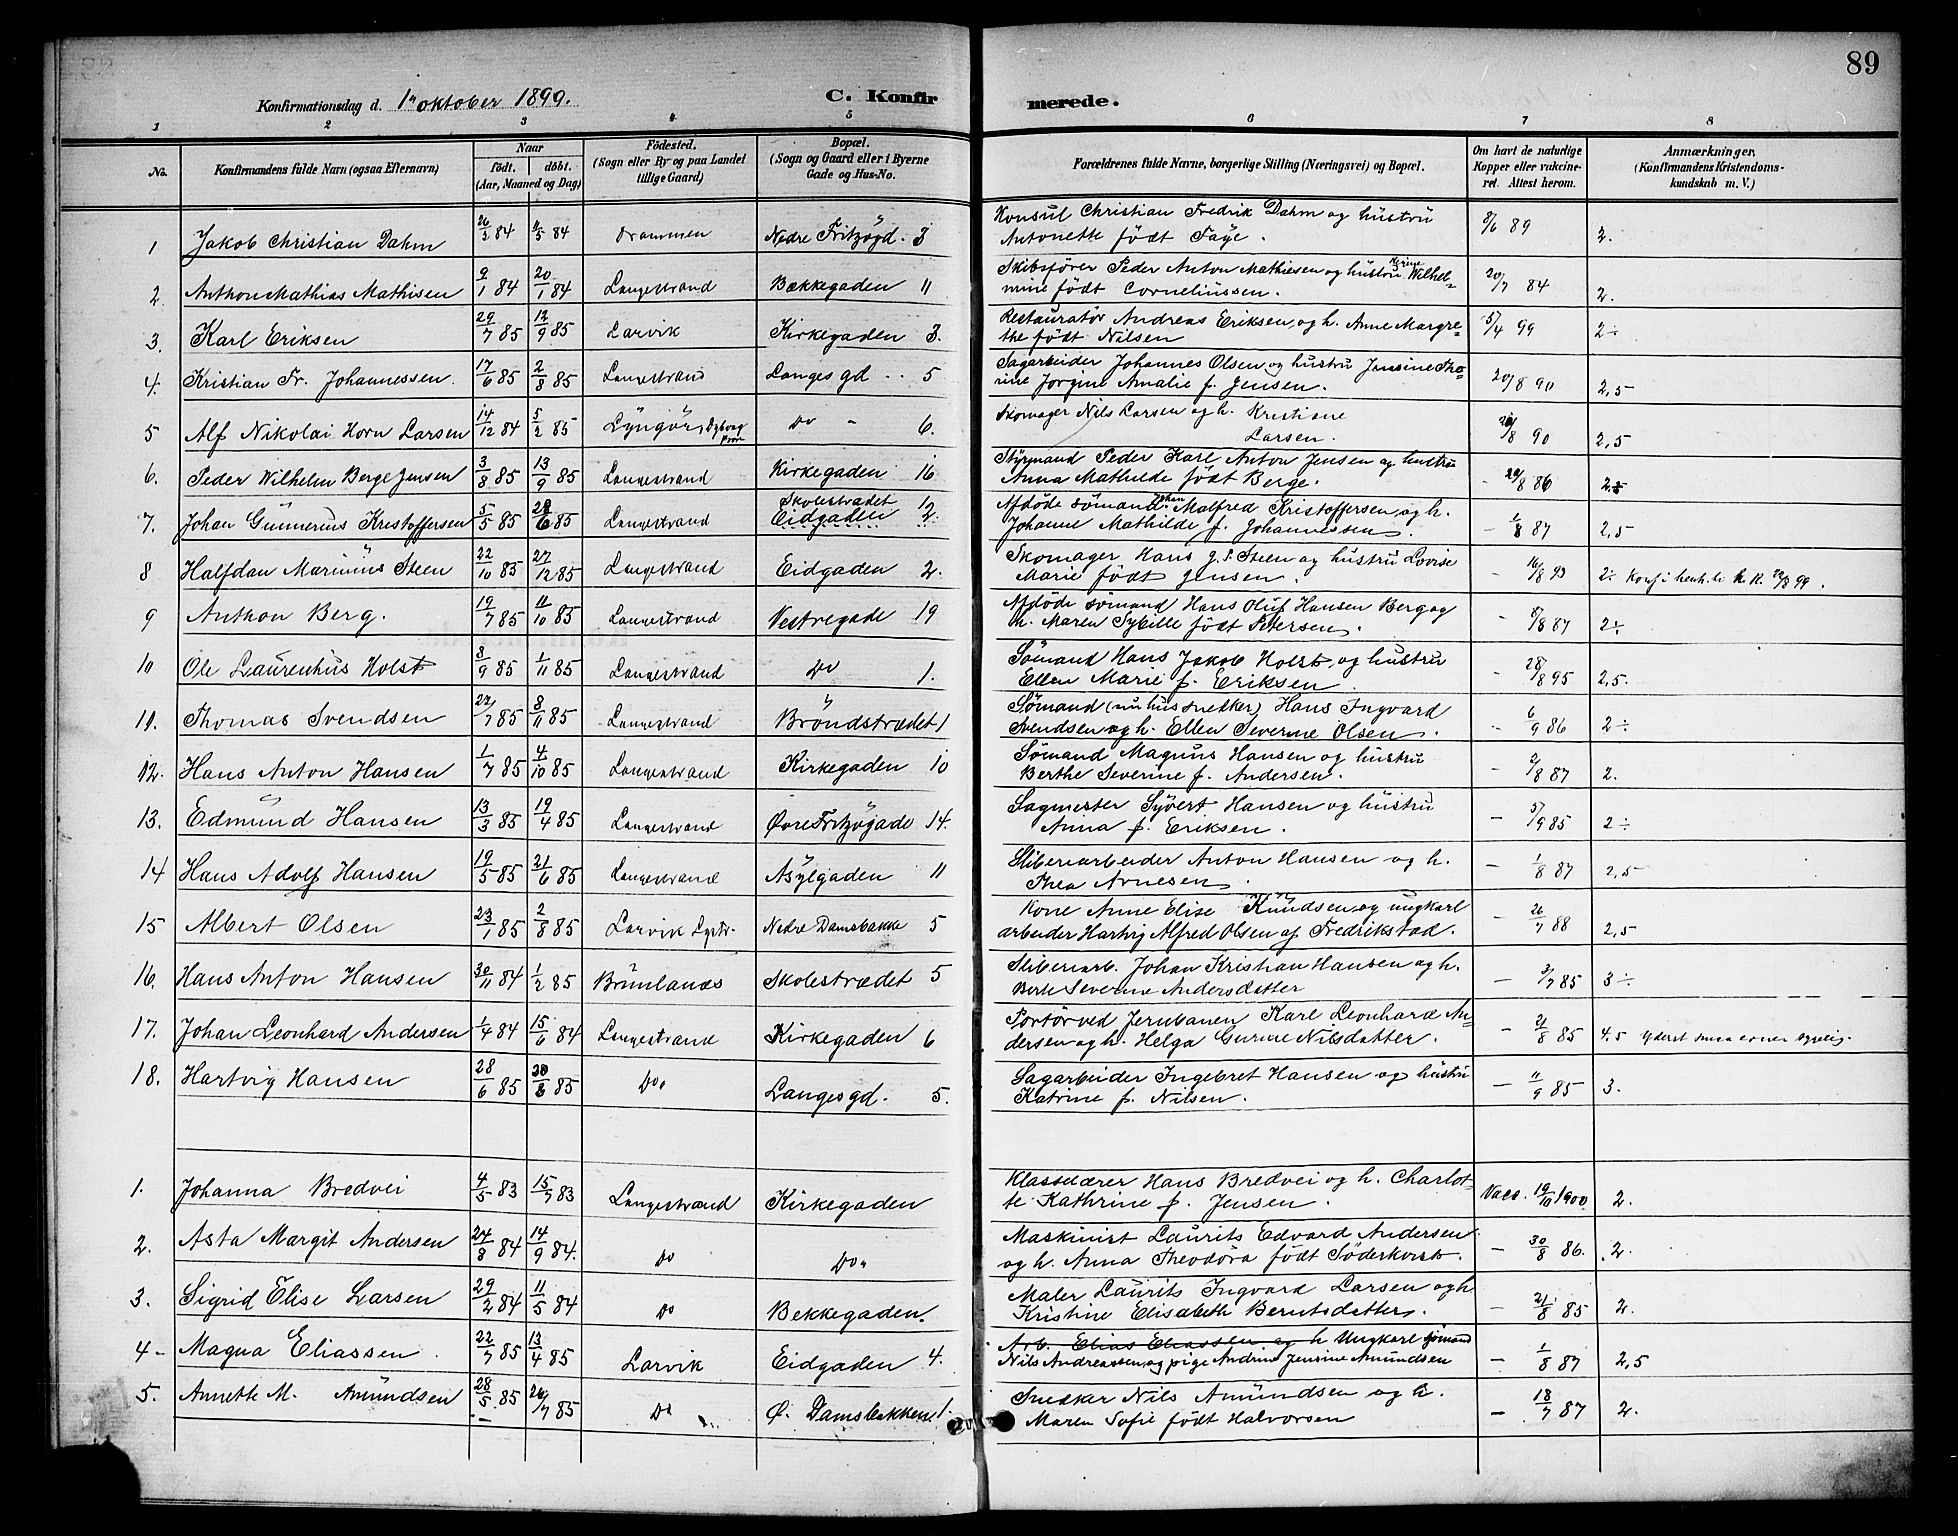 89
Konfirmationsdag d. 1ste oktober 1899. C. Konfirmerede.
1 2 3 4 5 6 7 8
No. Konfirmandens fulde Navn (ogsaa Efternavn) Naar født. døbt. (Aar, Maaned og Dag) Fødested. (Sogn eller By og paa Landet tillige Gaard) Bopæl. (Sogn og Gaard eller i Byerne Gade og Hus-No. Forældrenes fulde Navne, borgerlige Stilling (Næringsvei) og Bopæl. Om havt de naturlige Kopper eller vaccineret. Attest herom. Anmærkninger, (Konfirmandens Kristendomskundskab m. V.)
1 Jakob Christian Dahm 26/2 84 /5 84 Drammen Nedre Fritzøgd. 3 Konsul Christian Fredrik Dahm og hustru 8/6 89 2.
Antonette født Faye.
2. Anthon Mathias Mathisen 9/1 84 20/1 84 Langestrand Bækkegaden 11 Skibsfører Peder Anton Mathiesen og hustru Wilhel- 20/7 84 2.
mine født Corneliussen.
3. Karl Eriksen 29/7 85 12/9 85 Larvik Kirkegaden 3. Restauratør Andreas Eriksen og h. Anne Margre- 5/4 99 2÷
the født Nilsen
4. Kristian Fr. Johannessen. 17/6 85 2/8 85 Langestrand Langesgd .. 5 Sagarbeider Johannes Olsen og hustru Jensine Tho- 20/8 90 2,5
rine Jorgine Amalie f. Jensen.
5 Alf Nikolai Horn Larsen 14/12 84 5/2 85 Lyngør, Dybvag Do - 6. Skomager Nils Larsen og h. Kristiane /8 90 2,5
Larsen.
6. Peder Wilhelm Berge Jensen 3/8 85 13/9 85 Langestrand Kirkegaden 16 Styrmand Peder Karl Anton Jensen og hustru - 29/8 86
Anna Mathilde født Berge.
7. Johan Gunnerius Kristoffersen 5/5 85 28/6 85 Langestrand Skolestrædet 12 Eidgaden 2. Afdøde sømand Johan Malfred Kristoffersen og h. - 1/8 87 2,5
Johanne Mathilde f. Johannessen.
8 Halfdan Marinius Steen 22/10 85 27/12 85 Langestrand Eidgaden 2. Skomager Hans J. S. Steen og hustru Lovise - 16/8 93 2÷
Marie født Jensen.
9 Anthon Berg. 19/7 85 11/10 85 Langestrand Vestregade 19 Afdøde sømand Hans Oluf Hansen Berg og - 8/8 87 2÷
h. Maren Sybille født Petersen.
10 Ole Laurentius Holst 3/9 85 1/11 85 Langestrand Do 1. Sømand Hans Jakob Holst og hustru - 28/8 95 2,5.
Ellen Marie f. Eriksen
11. Thomas Svendsen 22/7 85 8/11 85 Langestrand Brøndstrædet 1 Sømand (nu hussnedker) Hans Ingvard - 6/9 86 2÷
Svendsen og h. Ellen Severine Olsen.
12. Hans Anton Hansen 1/7 85 4/10 85 Langestrand Kirkegaden 10 Sømand Magnus Hansen og hustru - 2/8 87 2.
Berthe Severine f. Andersen.
13. Edmund Hansen 13/3 85 19/4 85 Langestrand Øvre Fritzøgade 14. Sagmester Syvert Hansen og hustru - 5/9 85 2÷
Anna f. Eriksen.
14 Hans Adolf Hansen 19/5 85 21/6 85 Langestrand Asylgaden 11 Sliberiarbeider Anton Hansen og h. - 1/8 87 2,5
Thea Arnesen.
15 Albert Olsen 23/1 85 2/8 85 Larvik Lgstr. Nedre Damsbakke 5 Kone Anne Elise Knudsen og ungkarl - 26/7 88 2,5
arbeider Hartvig Alfred Olsen af Fredrikstad.
16. Hans Anton Hansen 30/11 84 1/2 85 Brunlanæs Skolestrædet 5 Sliberiarb. Johan Kristian Hansen og h. - 3/7 85 3÷
Berte Severine Andersdatter
17. Johan Leonhard Andersen 1/4 84 15/6 84 Langestrand Kirkegaden 6 Portør ved Jernbanen Karl Leonhard An- - 21/8 85 4,5 Yderst smaa evner sygelig.
dersen og h. Helga Gurine Nilsdatter.
18. Hartvig Hansen 28/6 85 /8 85 Do. Langesgd. 5. Sagarbeider Ingebret Hansen og hustru - 11/9 85 3.
Katrine f. Nilsen.
1. Johanna Bredvei 4/5 83 15/7 83 Langestrand Kirkegaden Klasselærer Hans Bredvei og h. Charlot- Vacc. 19/10 1900 2.
te Kathrine f. Jensen.
2. Asta Margit Andersen 24/8 84 14/9 84. Do Do. Maskinist Laurits Edvard Andersen - 30/8 86. 2.
og h. Anna Theodora født Söderkvist.
3. Sigrid Elise Larsen 29/2 84 11/5 84 Do Bekkegaden. Maler Laurits Ingvard Larsen og h - 21/8 85 2.
Kristine Elisabeth Berntsdatter.
4- Magna Eliassen. 22/7 85 13/4 85 Larvik Eidgaden 4. Arb. Elias Eliassen og h Ungkarl sømand
Nils Andreassen og pige Andrine Jensine Amundsen - 1/8 87 2,5
5. Annette M. Amundsen 28/5 85 26/7 85 Do Ø. Damsbakken 1. Snedker Nils Amundsen og h. - 18/7 87 2.
Maren Sofie født Halvorsen